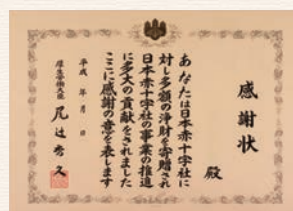 感謝状
殿
あなたは日本赤十字社に
対し多額の浄財を寄贈され
日本赤十字社の事業の推進
に多大の貢献をされました
ここに感謝の意を表します
平成 年 月 日
厚生労働大臣 尾辻秀久